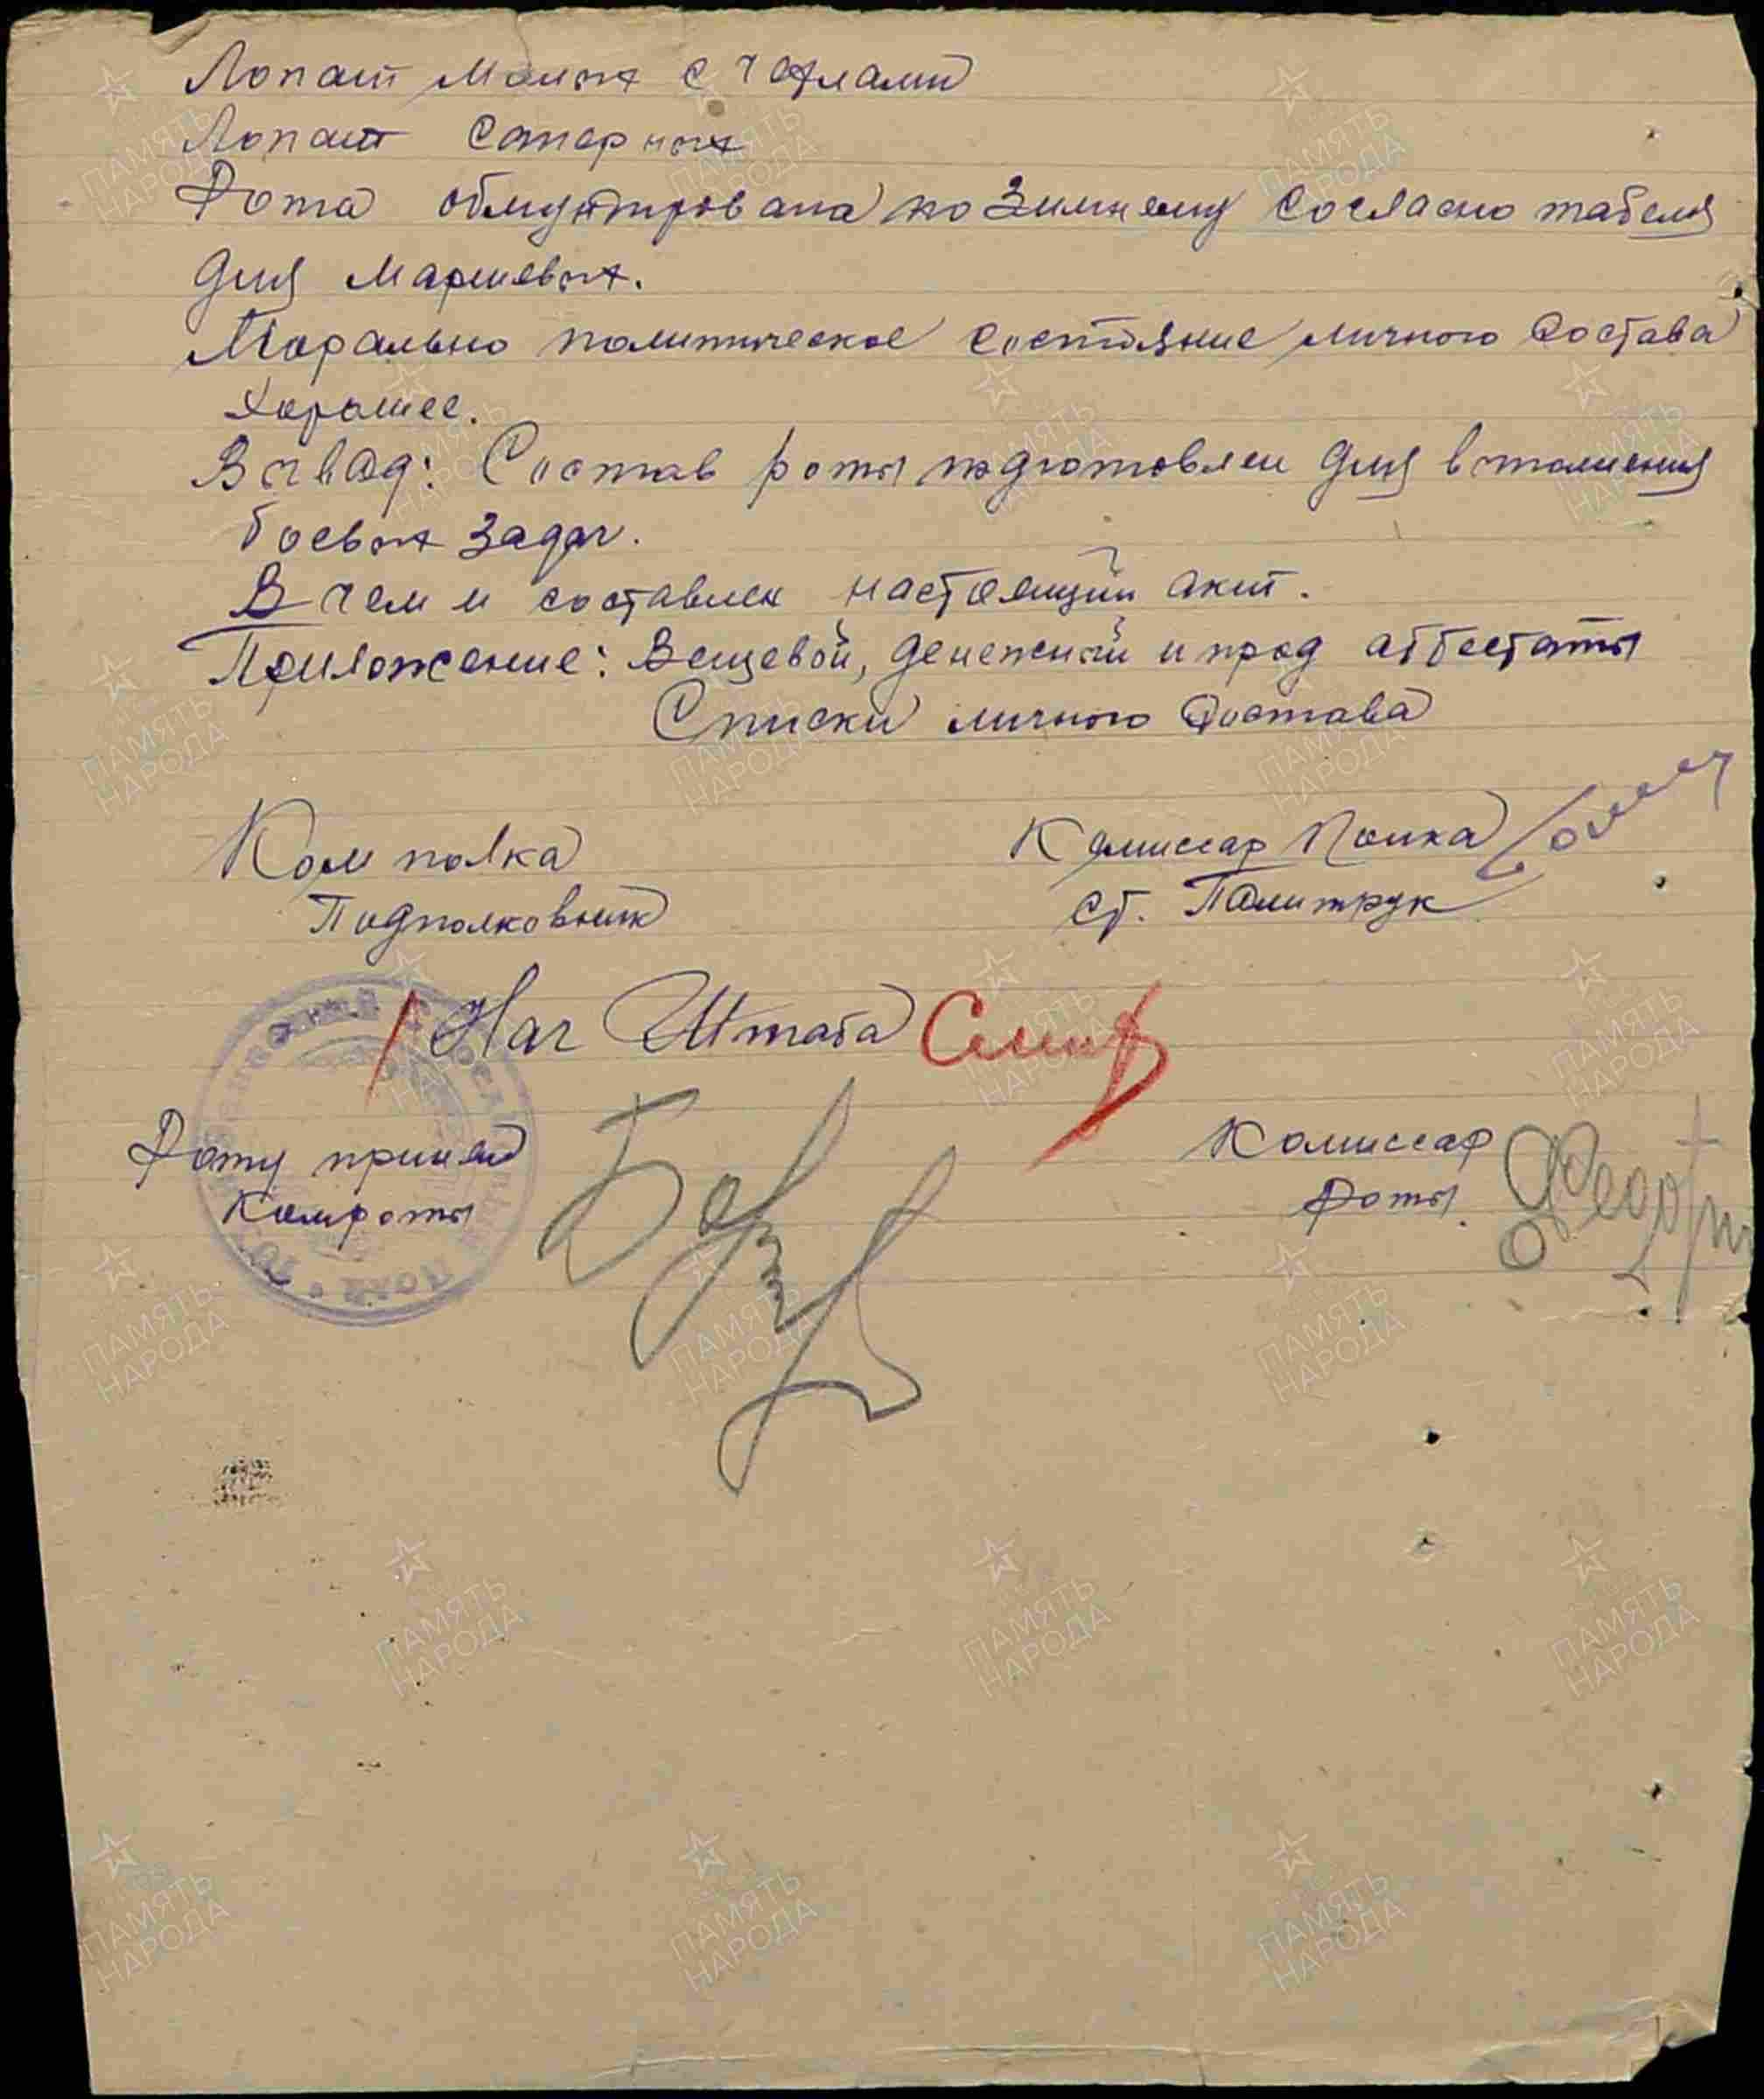 Лопат Малых с чехлами
Лопат Саперных
Рота обмундирована по Зимнему Согласно табеля
для Маршевых.
Морально политическое состояние личного Состава
Хорошее.
Вывод: Состав роты подготовлен для выполнения
боевых задач.
В чем и составлен настоящий акт.
Приложение: Вещевой, денежный и прод аттестаты
Списки личного Состава
Ком полка
Подполковник
Комиссар Полка
Ст. Политрук
Нач Штаба
Роту принял
Комроты
Комиссар
роты